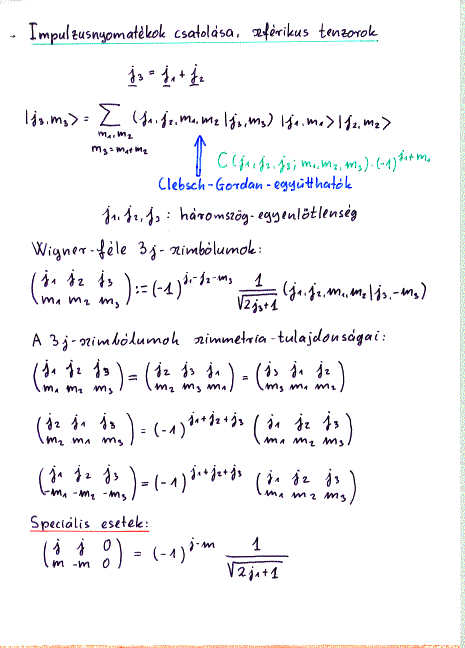 - Impulzusnyomatékok csatolása, szférikus tenzorok
j₃ = j₁ + j₂
|j₃,m₃> = ∑ (j₁,j₂,m₁,m₂|j₃,m₃) |j₁,m₁>|j₂,m₂>
m₁,m₂
m₃=m₁+m₂
C(j₁,j₂,j₃; m₁,m₂,m₃)·(-1)^(j₁+m₁)
Clebsch-Gordan-együtthatók
j₁,j₂,j₃ : háromszög-egyenlőtlenség
Wigner-féle 3j-szimbólumok:
(j₁ j₂ j₃ / m₁ m₂ m₃) := (-1)^(j₁-j₂-m₃) 1/√(2j₃+1) (j₁,j₂,m₁,m₂|j₃,-m₃)
A 3j-szimbólumok szimmetria-tulajdonságai:
(j₁ j₂ j₃ / m₁ m₂ m₃) = (j₂ j₃ j₁ / m₂ m₃ m₁) = (j₃ j₁ j₂ / m₃ m₁ m₂)
(j₂ j₁ j₃ / m₂ m₁ m₃) = (-1)^(j₁+j₂+j₃) (j₁ j₂ j₃ / m₁ m₂ m₃)
(j₁ j₂ j₃ / -m₁ -m₂ -m₃) = (-1)^(j₁+j₂+j₃) (j₁ j₂ j₃ / m₁ m₂ m₃)
Speciális esetek:
(j j 0 / m -m 0) = (-1)^(j-m) 1/√(2j₁+1)